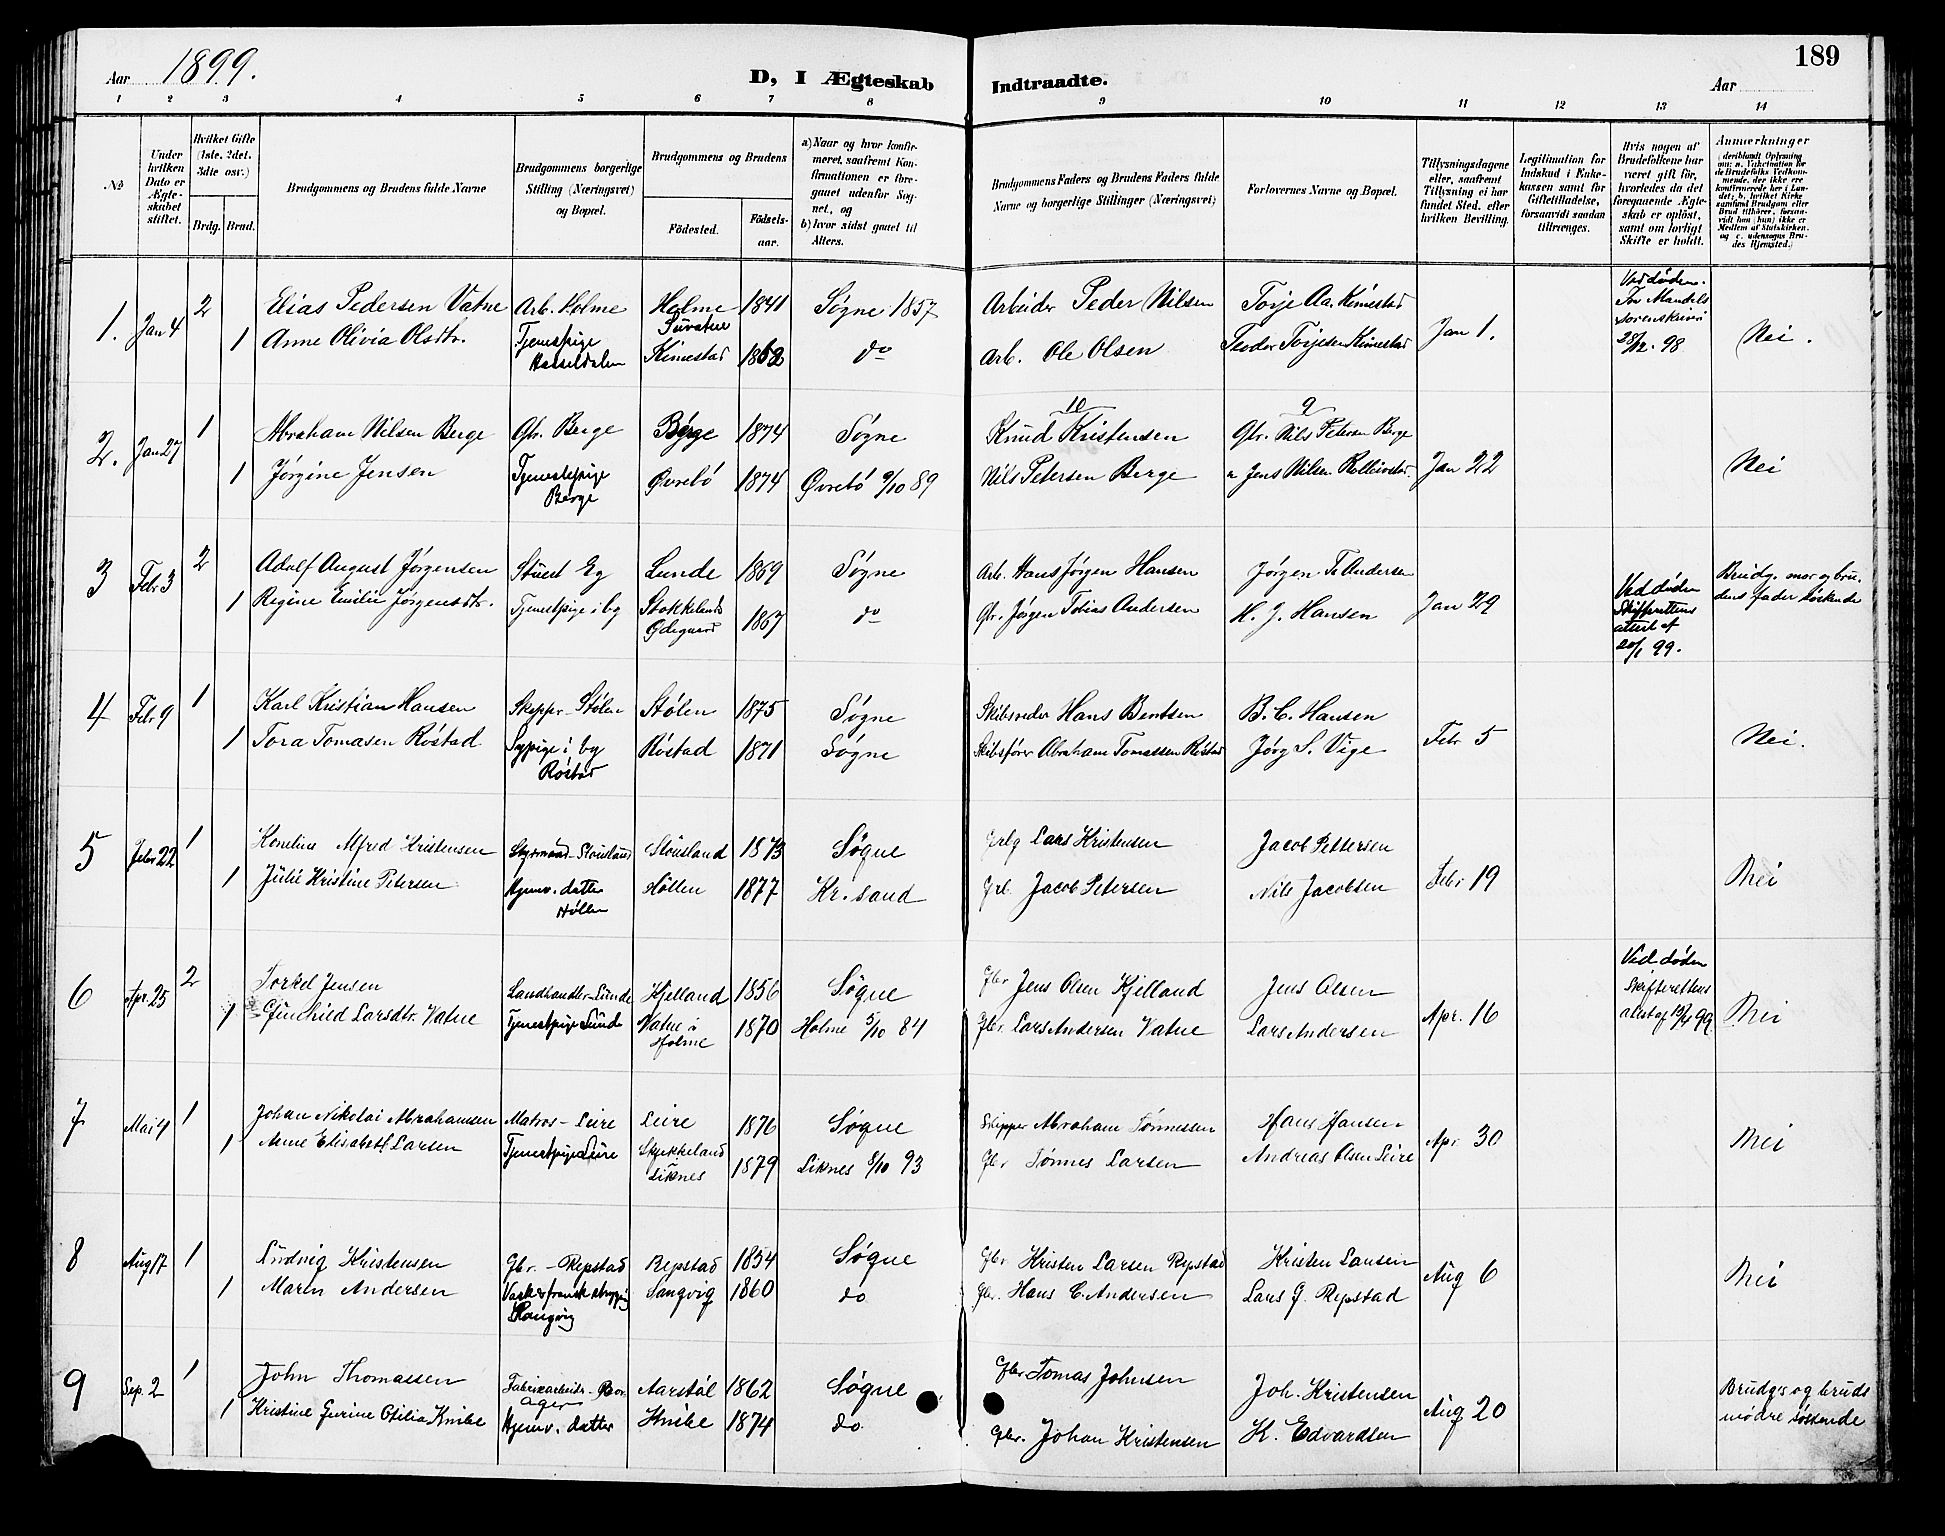 189
Aar 1899.
D, I Ægteskab Indtraadte.
Aar
1 2 3 4 5 6 7 8 9 10 11 12 13 14
No
Under hvilken Dato er Ægteskabet stiftet.
Hvilket Gifte (1ste, 2det, 3die osv.)
Brdg. Brud.
Brudgommens og Brudens fulde Navne
Brudgommens borgerlige Stilling (Næringsvei) og Bopæl.
Brudgommens og Brudens
Födested. Födselsaar.
a) Naar og hvor konfirmeret, saafremt Konfirmationen er foregaaet udenfor Sognet, og
b) hvor sidst gaaet til Alters.
Brudgommens Faders og Brudens Faders fulde Navne og borgerlige Stillinger (Næringsvei)
Forlovernes Navne og Bopæl.
Tillysningsdagene eller, saafremt Tillysning ei har fundet Sted, efter hvilken Bevilling.
Legitimation for Indskud i Enkekassen samt for Giftetilladelse, forsaavidt saadan tiltrænges.
Hvis nogen af Brudefolkene har været gift før, hvorledes da det foregaaende Ægteskab er opløst, samt om lovligt Skifte er holdt.
Anmærkninger
1. Jan 4 2 Elias Pedersen Vatne Arb. Holme Holme 1841 Søgne 1857 Arbeider Peder Nilsen Torje Aa. Kimestad Jan 1. Ved døden. For Mandals sorenskriveri 28/12. 98 Nei.
1 Anne Olivia Olsdtr. Tjenestpige Hasseldalen Kimestad 1862 do Arb. Ole Olsen Teodor Torjesen Kimestad
2. Jan 27 1 Abraham Nilsen Berge Gbr. Berge Berge 1874 Søgne 10 Knud Kristensen 9 Gbr. Nils Petersen Berge Jan 22 Nei
1 Jørgine Jensen Tjenestepige Berge Øvrebö 1874 Øvrebö 9/10 89 Nils Petersen Berge " Jens Nilsen
3 Febr 3 2 Adolf August Jørgensen Stuert Eg Lunde 1869 Søgne Arb. Hans Jørgen Hansen Jørgen T. Andersen Jan 29 Ved døden Skifterettens attest af 20/1 99. Brudg. mor og brudens fader søskende
1 Regine Emilie Jørgensdtr. Tjenestpige i by Stokkelands Ødegaard 1867 do Gbr. Jørgen Tobias Andersen H. J. Hansen
4 Febr 9 1 Karl Kristian Hansen Skipper - Stølen Stølen 1875 Søgne Skibsreder Hans Bentsen B. C. Hansen Febr 5 Nei.
1 Tora Tomasen Røstad Sypige i by Røstad Røstad 1871 Søgne Skibsfører Abraham Tomassen Røstad Jørg S. Vige
5 Febr 22 1 Kornelius Alfred Kristensen Styrmand - Stousland Stousland 1873 Søgne Lars Kristensen Jacob Pettersen Febr 19 Nei
1 Julie Kristine Petersen Hjemv. datter Høllen Høllen 1877 Kr.sand Jacob Petersen Nils Jacobsen
6 Apr. 25 2 Torkel Jensen Landhandler - Lunde Kjelland 1856 Søgne Gbr Jens Olsen Kjelland Jens Olsen Apr. 16 Ved døden Skifterettens attest af 99 Nei
1 Gunhild Larsdtr. Vatne Tjenestpige Lunde Vatne i Holme 1870 Holme 5/10 84 Gbr. Lars Andersen Vatne Lars Andersen
7 Mai 4 1 Johan Nikolai Abrahamsen Matros - Leire Leire 1876 Søgne Skipper Abraham Tønnessen Hans Hansen Apr 30 Nei
1 Anne Elisabeth Larsen Tjenestpige Leire Liknes 1879 Liknes 8/10 93 Gbr Tønnes Larsen Andreas Olsen Leire
8 Aug 17 1 Ludvig Kristensen Gbr. - Repstad Repstad 1854 Søgne Gbr Kristen Larsen Repstad Kristen Larsen Aug 6 Nei
1 Maren Andersen Langvig 1860 do Gbr. Hans C. Andersen Lars G. Repstad
9 Sep. 2 1 John Thomassen Fabrikarbeider Aarstøl 1862 Søgne Gbr Tomas Johnsen Joh. Kristensen Aug 20 Brudgs og bruds mødre søskende
1 Kristine Gurine Otilia Knibe Hjemv. datter Knibe 1874 do Gbr. Johan Kristensen K. Edvardsen